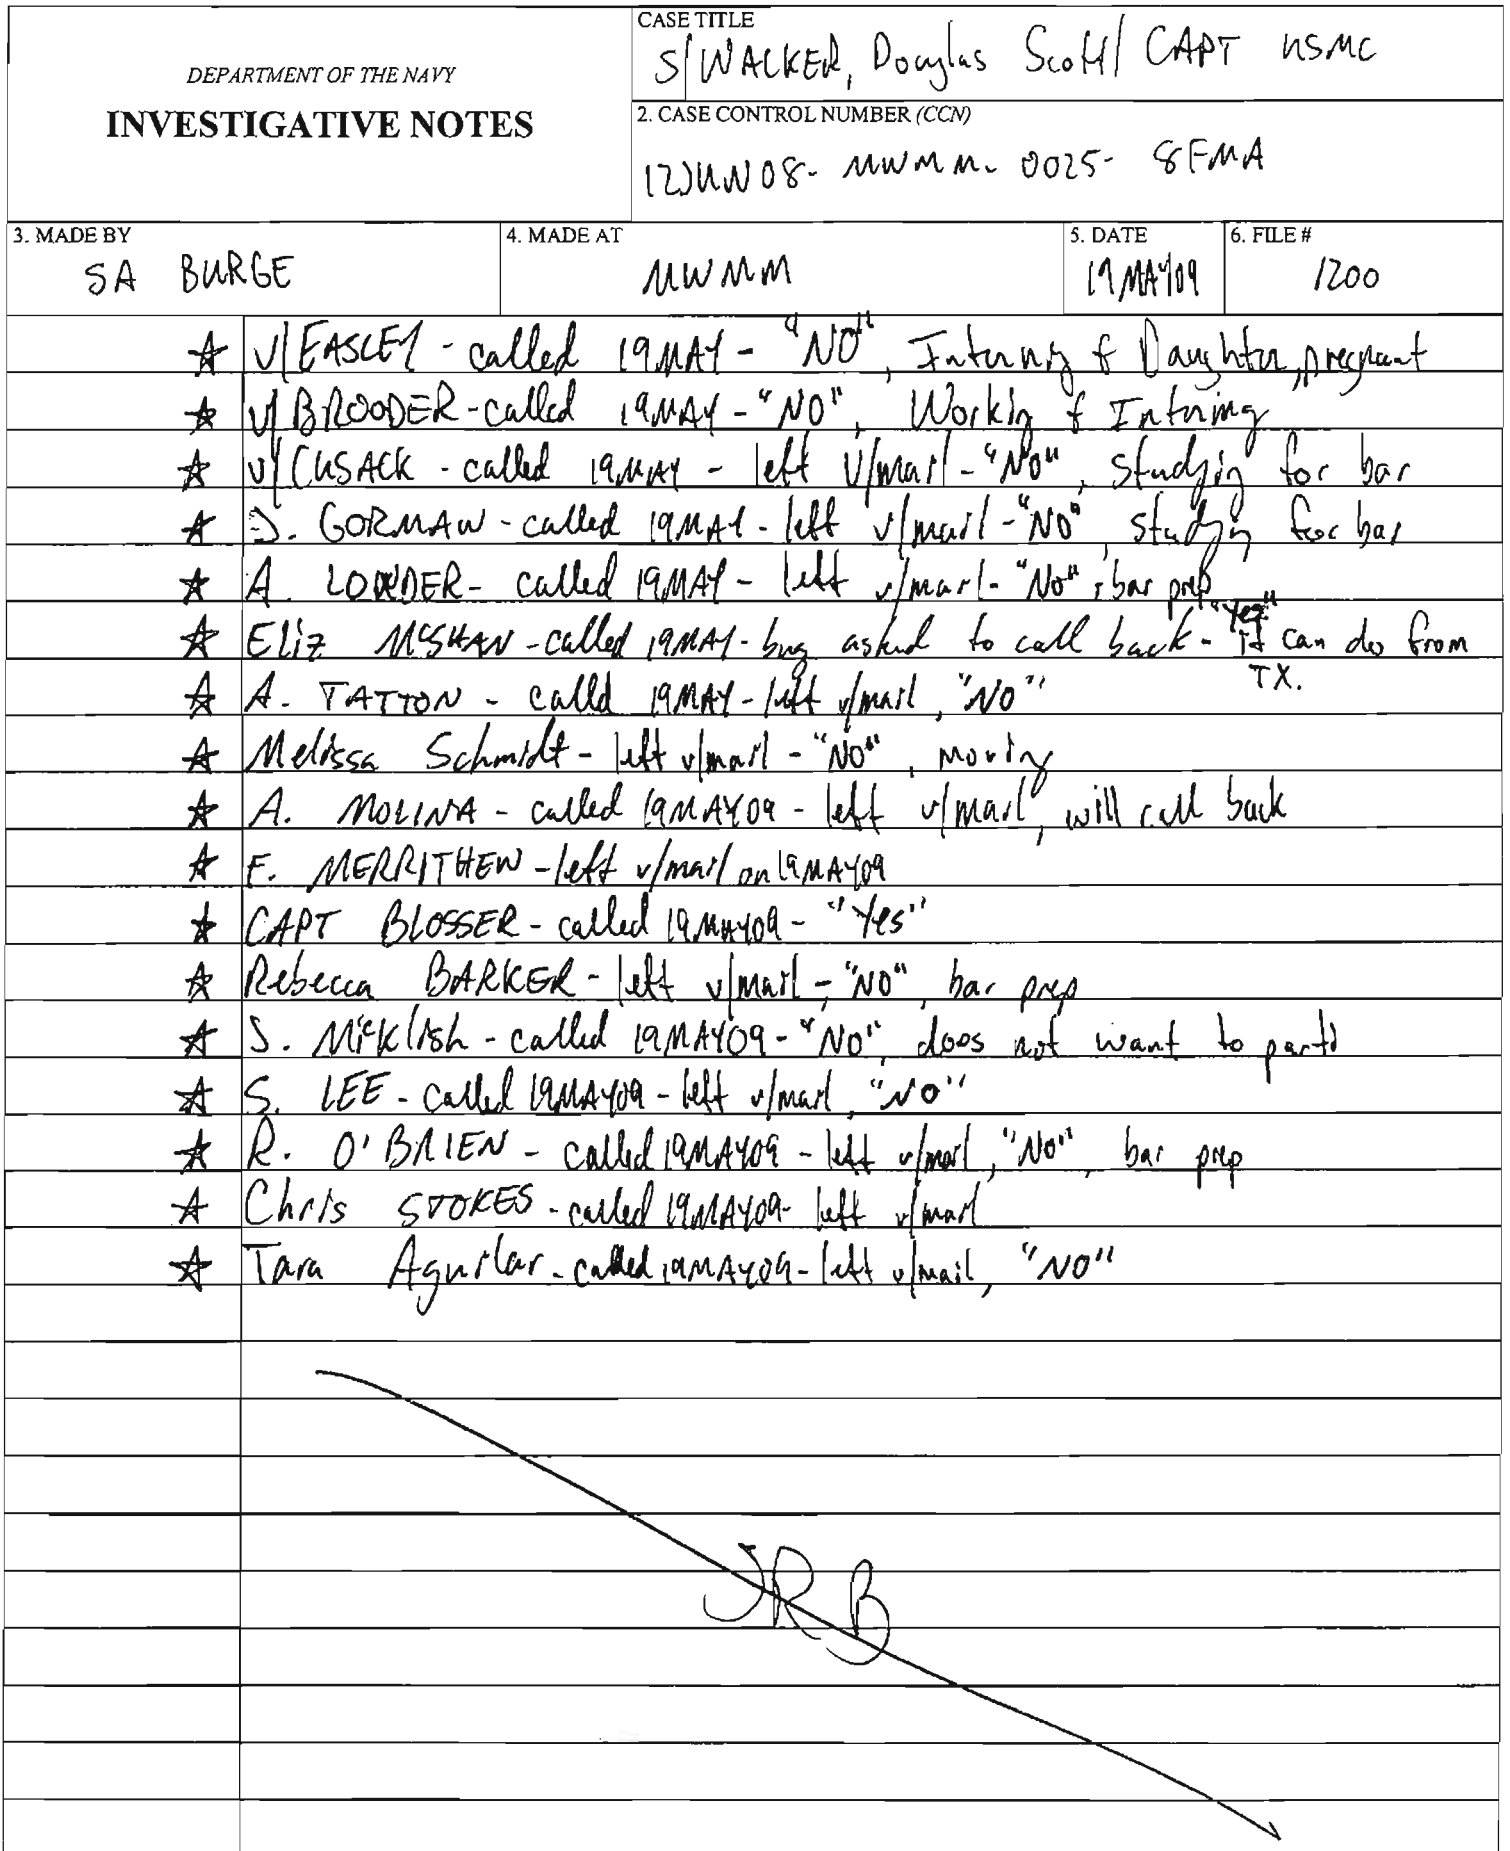 DEPARTMENT OF THE NAVY
INVESTIGATIVE NOTES
CASE TITLE
S/WALKER, Douglas Scott/ CAPT USMC
2. CASE CONTROL NUMBER (CCN)
12JUN08- MWMM- 0025- 8FMA
3. MADE BY
SA BURGE
4. MADE AT
MWMM
5. DATE
19MAY09
6. FILE #
1200
V/EASLEY - called 19MAY - "NO", Interning & Daughter, pregnant
V/BROODER - called 19MAY - "NO", Working & Interning
V/CUSACK - called 19MAY - left V/mail - "NO", studying for bar
GORMAN - called 19MAY - left v/mail - "NO", studying for bar
A. LOWDER - called 19MAY - left v/mail - "NO", bar prep
Eliz MCSHAN - called 19MAY - asked to call back - "Yes" if can do from TX.
A. TATTON - called 19MAY - left v/mail, "NO"
Melissa Schmidt - left v/mail - "NO", moving
A. MOLINA - called 19MAY09 - left v/mail, will call back
F. MERRITHEW - left v/mail on 19MAY09
CAPT BLOSSER - called 19MAY09 - "Yes"
Rebecca BARKER - left v/mail - "NO", bar prep
S. Micklish - called 19MAY09 - "NO", does not want to
S. LEE - called 19MAY09 - left v/mail, "NO"
R. O'BRIEN - called 19MAY09 - left v/mail, "NO", bar prep
Chris STOKES - called 19MAY09 - left v/mail
Tara Aguilar - called 19MAY09 - left v/mail, "NO"
JRB